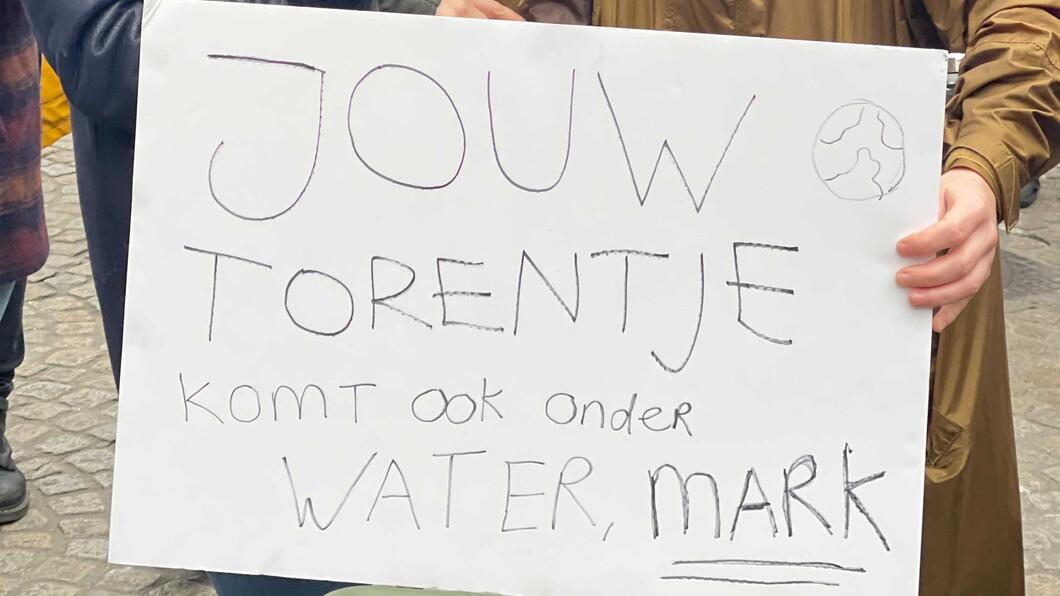 JOUW
TORENTJE
KOMT OOK onder
WATER, MARK